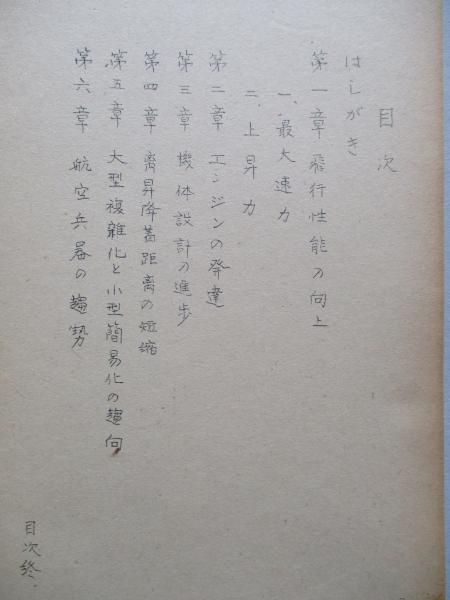 目次
はしがき
第一章 飛行性能ノ向上
一、最大速力
二、上昇力
第二章 エンジンの発達
第三章 機体設計ノ進歩
第四章 离昇降着距离の短縮
第五章 大型複雑化と小型簡易化の趨向
第六章 航空兵器の趨勢
目次終.